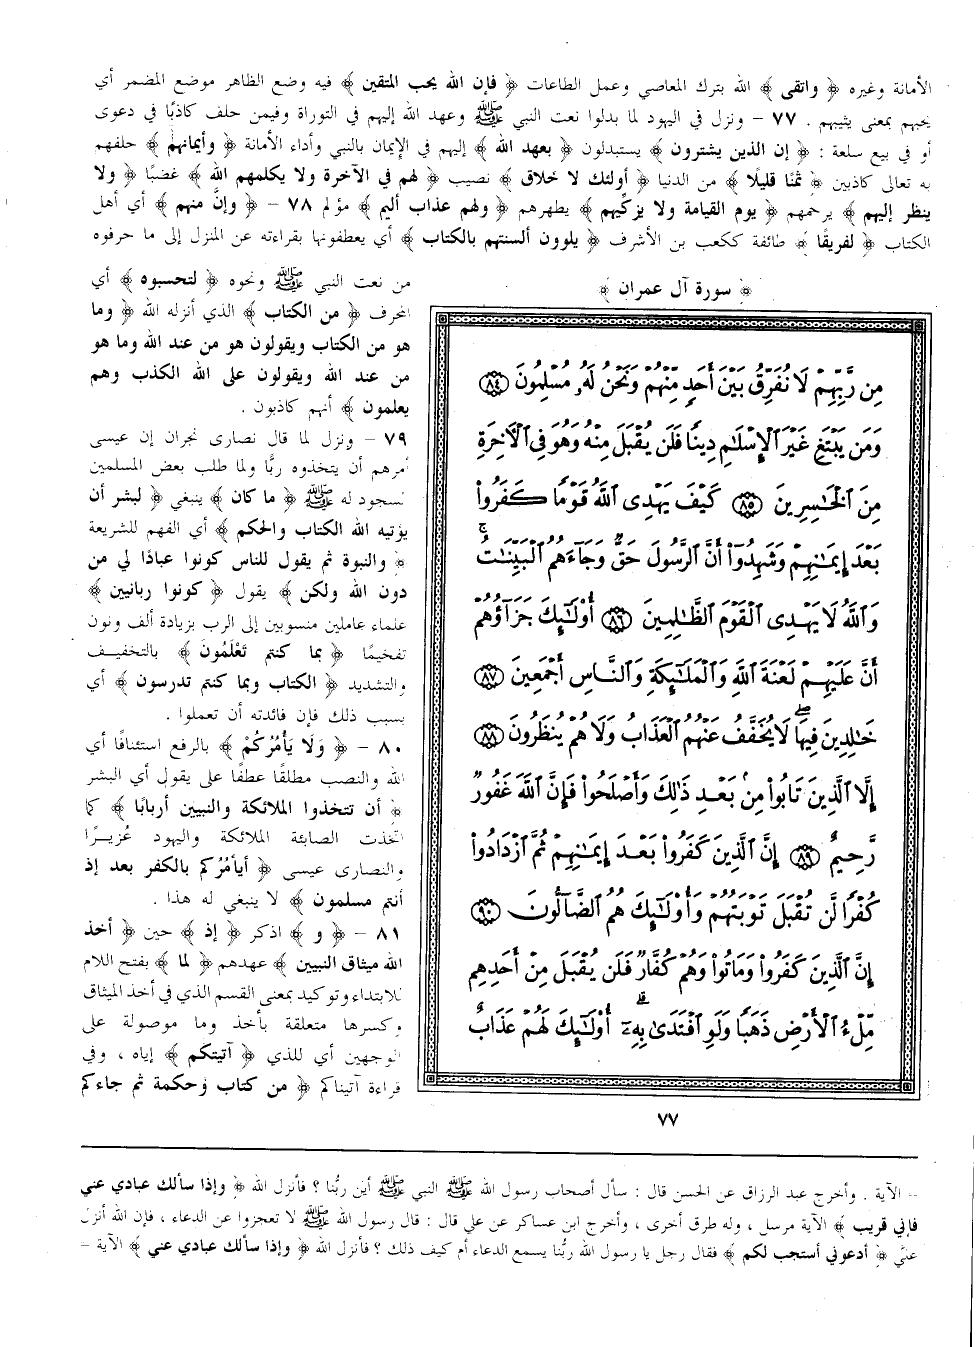 الأمانة وغيره ﴿ واتقى ﴾ الله بترك المعاصي وعمل الطاعات ﴿ فإن الله يحب المتقين ﴾ فيه وضع الظاهر موضع المضمر أي
يحبهم بمعنى يثيبهم . ٧٧ – ونزل في اليهود لما بدلوا نعت النبي ﷺ وعهد الله إليهم في التوراة وفيمن حلف كاذبًا في دعوى
أو في بيع سلعة : ﴿ إن الذين يشترون ﴾ يستبدلون ﴿ بعهد الله ﴾ إليهم في الإيمان بالنبي وأداء الأمانة ﴿ وأيمانهم ﴾ حلفهم
به تعالى كاذبين ﴿ ثمنًا قليلًا ﴾ من الدنيا ﴿ أولئك لا خلاق ﴾ نصيب ﴿ لهم في الآخرة ولا يكلمهم الله ﴾ غضبًا ﴿ ولا
ينظر إليهم ﴾ يرحمهم ﴿ يوم القيامة ولا يزكّيهم ﴾ يطهرهم ﴿ ولهم عذاب أليم ﴾ مؤلم ٧٨ – ﴿ وإنَّ منهم ﴾ أي أهل
الكتاب ﴿ لفريقًا ﴾ طائفة ككعب بن الأشرف ﴿ يلوون ألسنتهم بالكتاب ﴾ أي يعطفونها بقراءته عن المنزل إلى ما حرفوه
من نعت النبي ﷺ ونحوه ﴿ لتحسبوه ﴾ أي
المحرف ﴿ من الكتاب ﴾ الذي أنزله الله ﴿ وما
هو من الكتاب ويقولون هو من عند الله وما هو
من عند الله ويقولون على الله الكذب وهم
يعلمون ﴾ أنهم كاذبون .
٧٩ – ونزل لما قال نصارى نجران إن عيسى
أمرهم أن يتخذوه ربًّا ولما طلب بعض المسلمين
السجود له ﷺ ﴿ ما كان ﴾ ينبغي ﴿ لبشر أن
يؤتيه الله الكتاب والحكم ﴾ أي الفهم للشريعة
﴿ والنبوة ثم يقول للناس كونوا عبادًا لي من
دون الله ولكن ﴾ يقول ﴿ كونوا ربانيين ﴾
علماء عاملين منسوبين إلى الرب بزيادة ألف ونون
تفخيمًا ﴿ بما كنتم تَعْلَمُونَ ﴾ بالتخفيف
والتشديد ﴿ الكتاب وبما كنتم تدرسون ﴾ أي
بسبب ذلك فإن فائدته أن تعملوا .
٨٠ – ﴿ وَلَا يَأْمُرُكُمْ ﴾ بالرفع استئنافًا أي
الله والنصب مطلقًا عطفًا على يقول أي البشر
﴿ أن تتخذوا الملائكة والنبيين أربابًا ﴾ كما
اتخذت الصابئة الملائكة واليهود عُزيرًا
والنصارى عيسى ﴿ أيأمُركم بالكفر بعد إذ
أنتم مسلمون ﴾ لا ينبغي له هذا .
٨١ – ﴿ و ﴾ اذكر ﴿ إذ ﴾ حين ﴿ أخذ
الله ميثاق النبيين ﴾ عهدهم ﴿ لما ﴾ بفتح اللام
للابتداء وتوكيد بمعنى القسم الذي في أخذ الميثاق
وكسرها متعلقة بأخذ وما موصولة على
الوجهين أي للذي ﴿ آتيتكم ﴾ إياه ، وفي
قراءة آتيناكم ﴿ من كتاب وحكمة ثم جاءكم
﴿ سورة آل عمران ﴾
مِن رَّبِّهِمْ لَا نُفَرِّقُ بَيْنَ أَحَدٍ مِّنْهُمْ وَنَحْنُ لَهُۥ مُسْلِمُونَ ٨٤
وَمَن يَبْتَغِ غَيْرَ ٱلْإِسْلَٰمِ دِينًا فَلَن يُقْبَلَ مِنْهُ وَهُوَ فِى ٱلْأَخِرَةِ
مِنَ ٱلْخَٰسِرِينَ ٨٥ كَيْفَ يَهْدِى ٱللَّهُ قَوْمًا كَفَرُوا۟
بَعْدَ إِيمَٰنِهِمْ وَشَهِدُوٓا۟ أَنَّ ٱلرَّسُولَ حَقٌّ وَجَآءَهُمُ ٱلْبَيِّنَٰتُ ۚ
وَٱللَّهُ لَا يَهْدِى ٱلْقَوْمَ ٱلظَّٰلِمِينَ ٨٦ أُو۟لَٰٓئِكَ جَزَآؤُهُمْ
أَنَّ عَلَيْهِمْ لَعْنَةَ ٱللَّهِ وَٱلْمَلَٰٓئِكَةِ وَٱلنَّاسِ أَجْمَعِينَ ٨٧
خَٰلِدِينَ فِيهَا ۖ لَا يُخَفَّفُ عَنْهُمُ ٱلْعَذَابُ وَلَا هُمْ يُنظَرُونَ ٨٨
إِلَّا ٱلَّذِينَ تَابُوا۟ مِنۢ بَعْدِ ذَٰلِكَ وَأَصْلَحُوا۟ فَإِنَّ ٱللَّهَ غَفُورٌ
رَّحِيمٌ ٨٩ إِنَّ ٱلَّذِينَ كَفَرُوا۟ بَعْدَ إِيمَٰنِهِمْ ثُمَّ ٱزْدَادُوا۟
كُفْرًا لَّن تُقْبَلَ تَوْبَتُهُمْ وَأُو۟لَٰٓئِكَ هُمُ ٱلضَّآلُّونَ ٩٠
إِنَّ ٱلَّذِينَ كَفَرُوا۟ وَمَاتُوا۟ وَهُمْ كُفَّارٌ فَلَن يُقْبَلَ مِنْ أَحَدِهِم
مِّلْءُ ٱلْأَرْضِ ذَهَبًا وَلَوِ ٱفْتَدَىٰ بِهِۦٓ ۗ أُو۟لَٰٓئِكَ لَهُمْ عَذَابٌ
٧٧
-- الآية . وأخرج عبد الرزاق عن الحسن قال : سأل أصحاب رسول الله ﷺ النبي ﷺ أين ربُّنا ؟ فأنزل الله ﴿ وإذا سألك عبادي عني
فإني قريب ﴾ الآية مرسل ، وله طرق أخرى ، وأخرج ابن عساكر عن علي قال : قال رسول الله ﷺ لا تعجزوا عن الدعاء ، فإن الله أنزل
عليَّ ﴿ أدعوني أستجب لكم ﴾ فقال رجل يا رسول الله ربُّنا يسمع الدعاء أم كيف ذلك ؟ فأنزل الله ﴿ وإذا سألك عبادي عني ﴾ الآية –